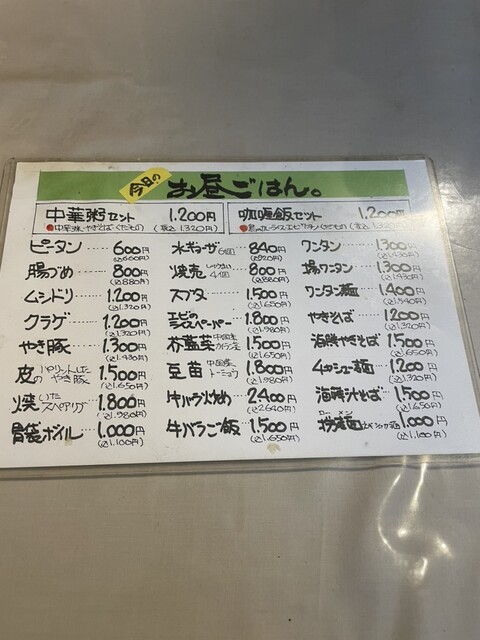 今日の お昼ごはん。
中華粥セット 1.200円
(税込 1.320円)
咖喱飯セット 1.200円
ピータン 600円
(込660円)
腸づめ 800円
(込880円)
ムシドリ 1.200円
(込1.320円)
クラゲ 1.200円
(込1.320円)
やき豚 1.300円
(込1.430円)
皮のパリッとした やき豚 1.500円
(込1.650円)
焼いた スペアリブ 1.800円
(込1.980円)
胃袋ボイル 1.000円
(込1.100円)
水ギョーザ 6個 840円
(込920円)
焼売 4個 800円
(込880円)
スブタ 1.500円
(込1.650円)
エビの チリペーパー 1.800円
(込1.980円)
芥藍菜 1.500円
(込1.650円)
豆苗 1.800円
(込1.980円)
牛バラ炒め 2.400円
(込2.640円)
牛バラご飯 1.500円
(込1.650円)
ワンタン 1.300円
(込1.430円)
揚ワンタン 1.300円
(込1.430円)
ワンタン麺 1.400円
(込1.540円)
やきそば 1.200円
(込1.320円)
海鮮やきそば 1.500円
(込1.650円)
チャーシュー麺 1.200円
(込1.320円)
海鮮汁そば 1.500円
(込1.650円)
ローメン
撈麺 1.000円
(込1.100円)